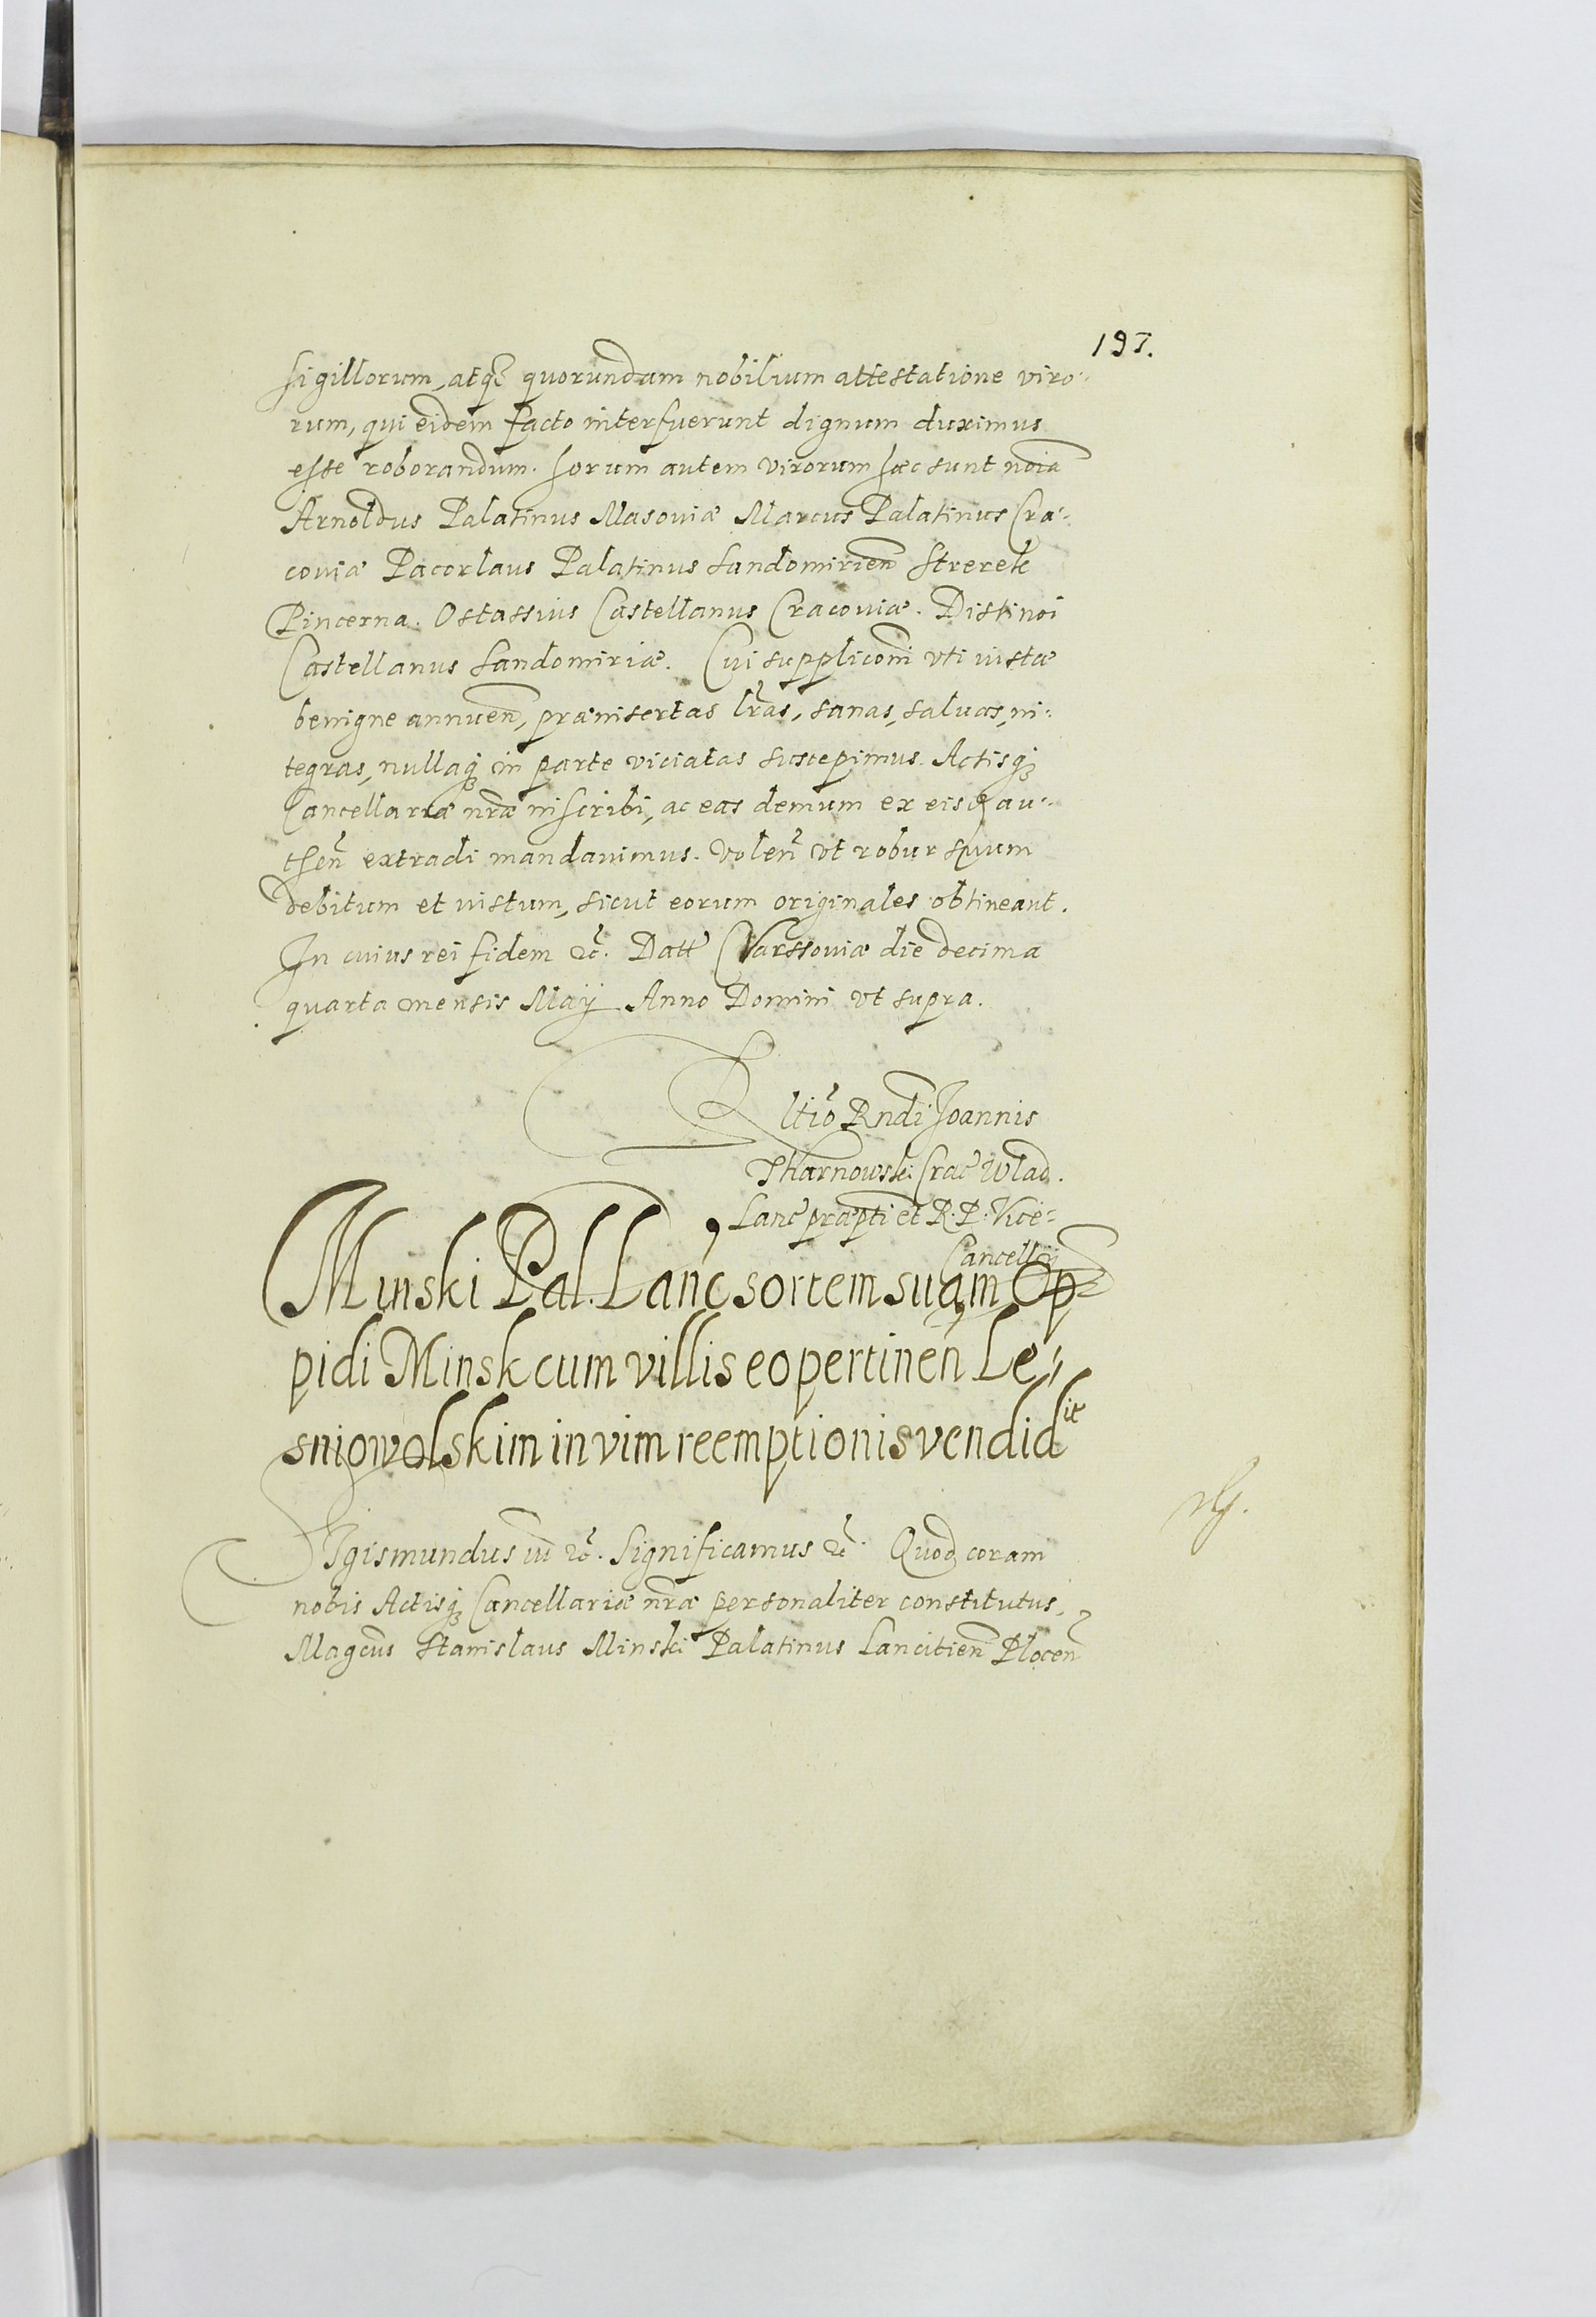 197.
sigillorum, atq₃ quorundam nobilium attestatione viro-
rum, qui eidem facto interfuerunt dignum duximus
esse roborandum. horum autem virorum hæc sunt noīa
Arnoldus Palatinus Masoviæ Marcus Palatinus Cra-
coviæ Pacorlaus Palatinus Sandomirien̄ Strerek
Pincerna. Ostassius Castellanus Cracoviæ. Distinoi
Castellanus Sandomiriæ. Cui supplicōni vti iustæ
benigne annuen̄, præinsertas lr̄as, sanas, saluas, in-
tegras, nullaq₃ in parte viciatas suscepimus. Actisq₃
Cancellariæ nr̄æ inscribi, ac eas demum ex eisd au-
then̄ extradi mandauimus. Volen̄ vt robur suum
debitum et iustum, sicut eorum originales obtineant.
In cuius rei fidem &c̄. Datt Varssoviæ die decima
quarta mensis Maÿ Anno Domini vt supra.
Rltīo Rndi Joannis
Tharnowski Crac Wlad.
Lanc præpti et R. P. Vice-
Cancellÿ
Minski Pal. Lanc sortem suam Op-
pidi Minsk cum villis eo pertinen̄ Le-
sniowolskim in vim reemptionis vendidit
Sigismundus iii &c̄. Significamus &c̄. Quod coram
nobis Actisq₃ Cancellariæ nr̄æ personaliter constitutus,
Magcus Stanislaus Minski Palatinus Lancitien̄ Plocen̄